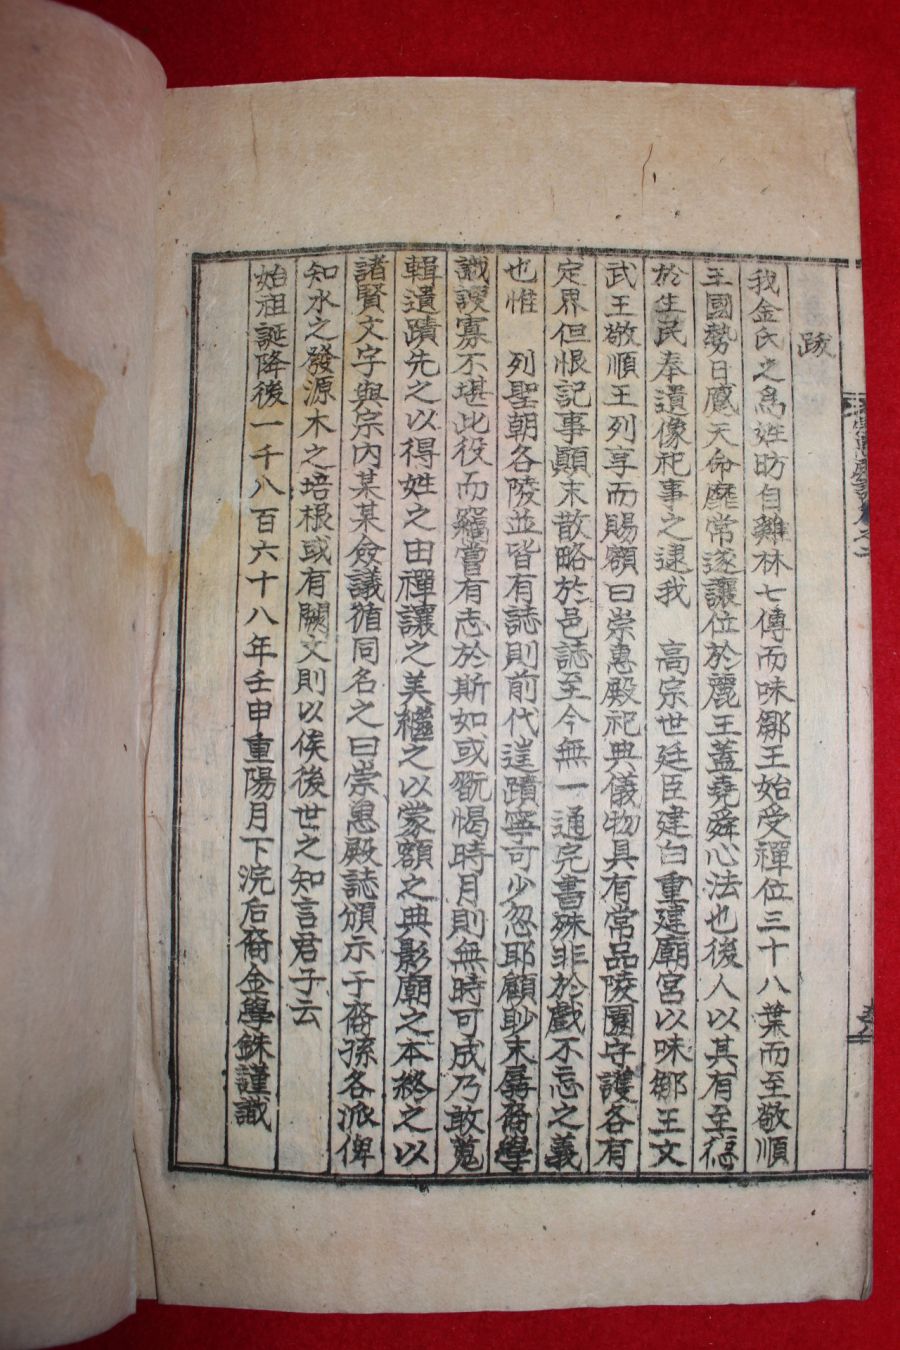 跋
我金氏之爲姓昉自雞林七傳而味鄒王始受禪位三十八葉而至敬順
王國勢日蹙天命靡常遂讓位於麗王蓋堯舜心法也後人以其有至德
於生民奉遺像祀事之逮我 高宗世廷臣建白重建廟宮以味鄒王文
武王敬順王列享而賜額曰崇惠殿祀典儀物具有常品陵園守護各有
定界但恨記事顚末散略於邑誌至今無一通完書殊非於戲不忘之義
也惟 列聖朝各陵並皆有誌則前代遑蹟寧可少忽耶顧眇末孱裔學
識謏寡不堪此役而竊嘗有志於斯如或翫愒時月則無時可成乃敢蒐
輯遺蹟先之以得姓之由禪讓之美繼之以蒙額之典影廟之本終之以
諸賢文字與宗內某某僉議循同名之曰崇惠殿誌頒示于裔孫各派俾
知水之發源木之培根或有闕文則以俟後世之知言君子云
始祖誕降後一千八百六十八年壬申重陽月下浣后裔金學銖謹識
崇惠殿誌卷之二